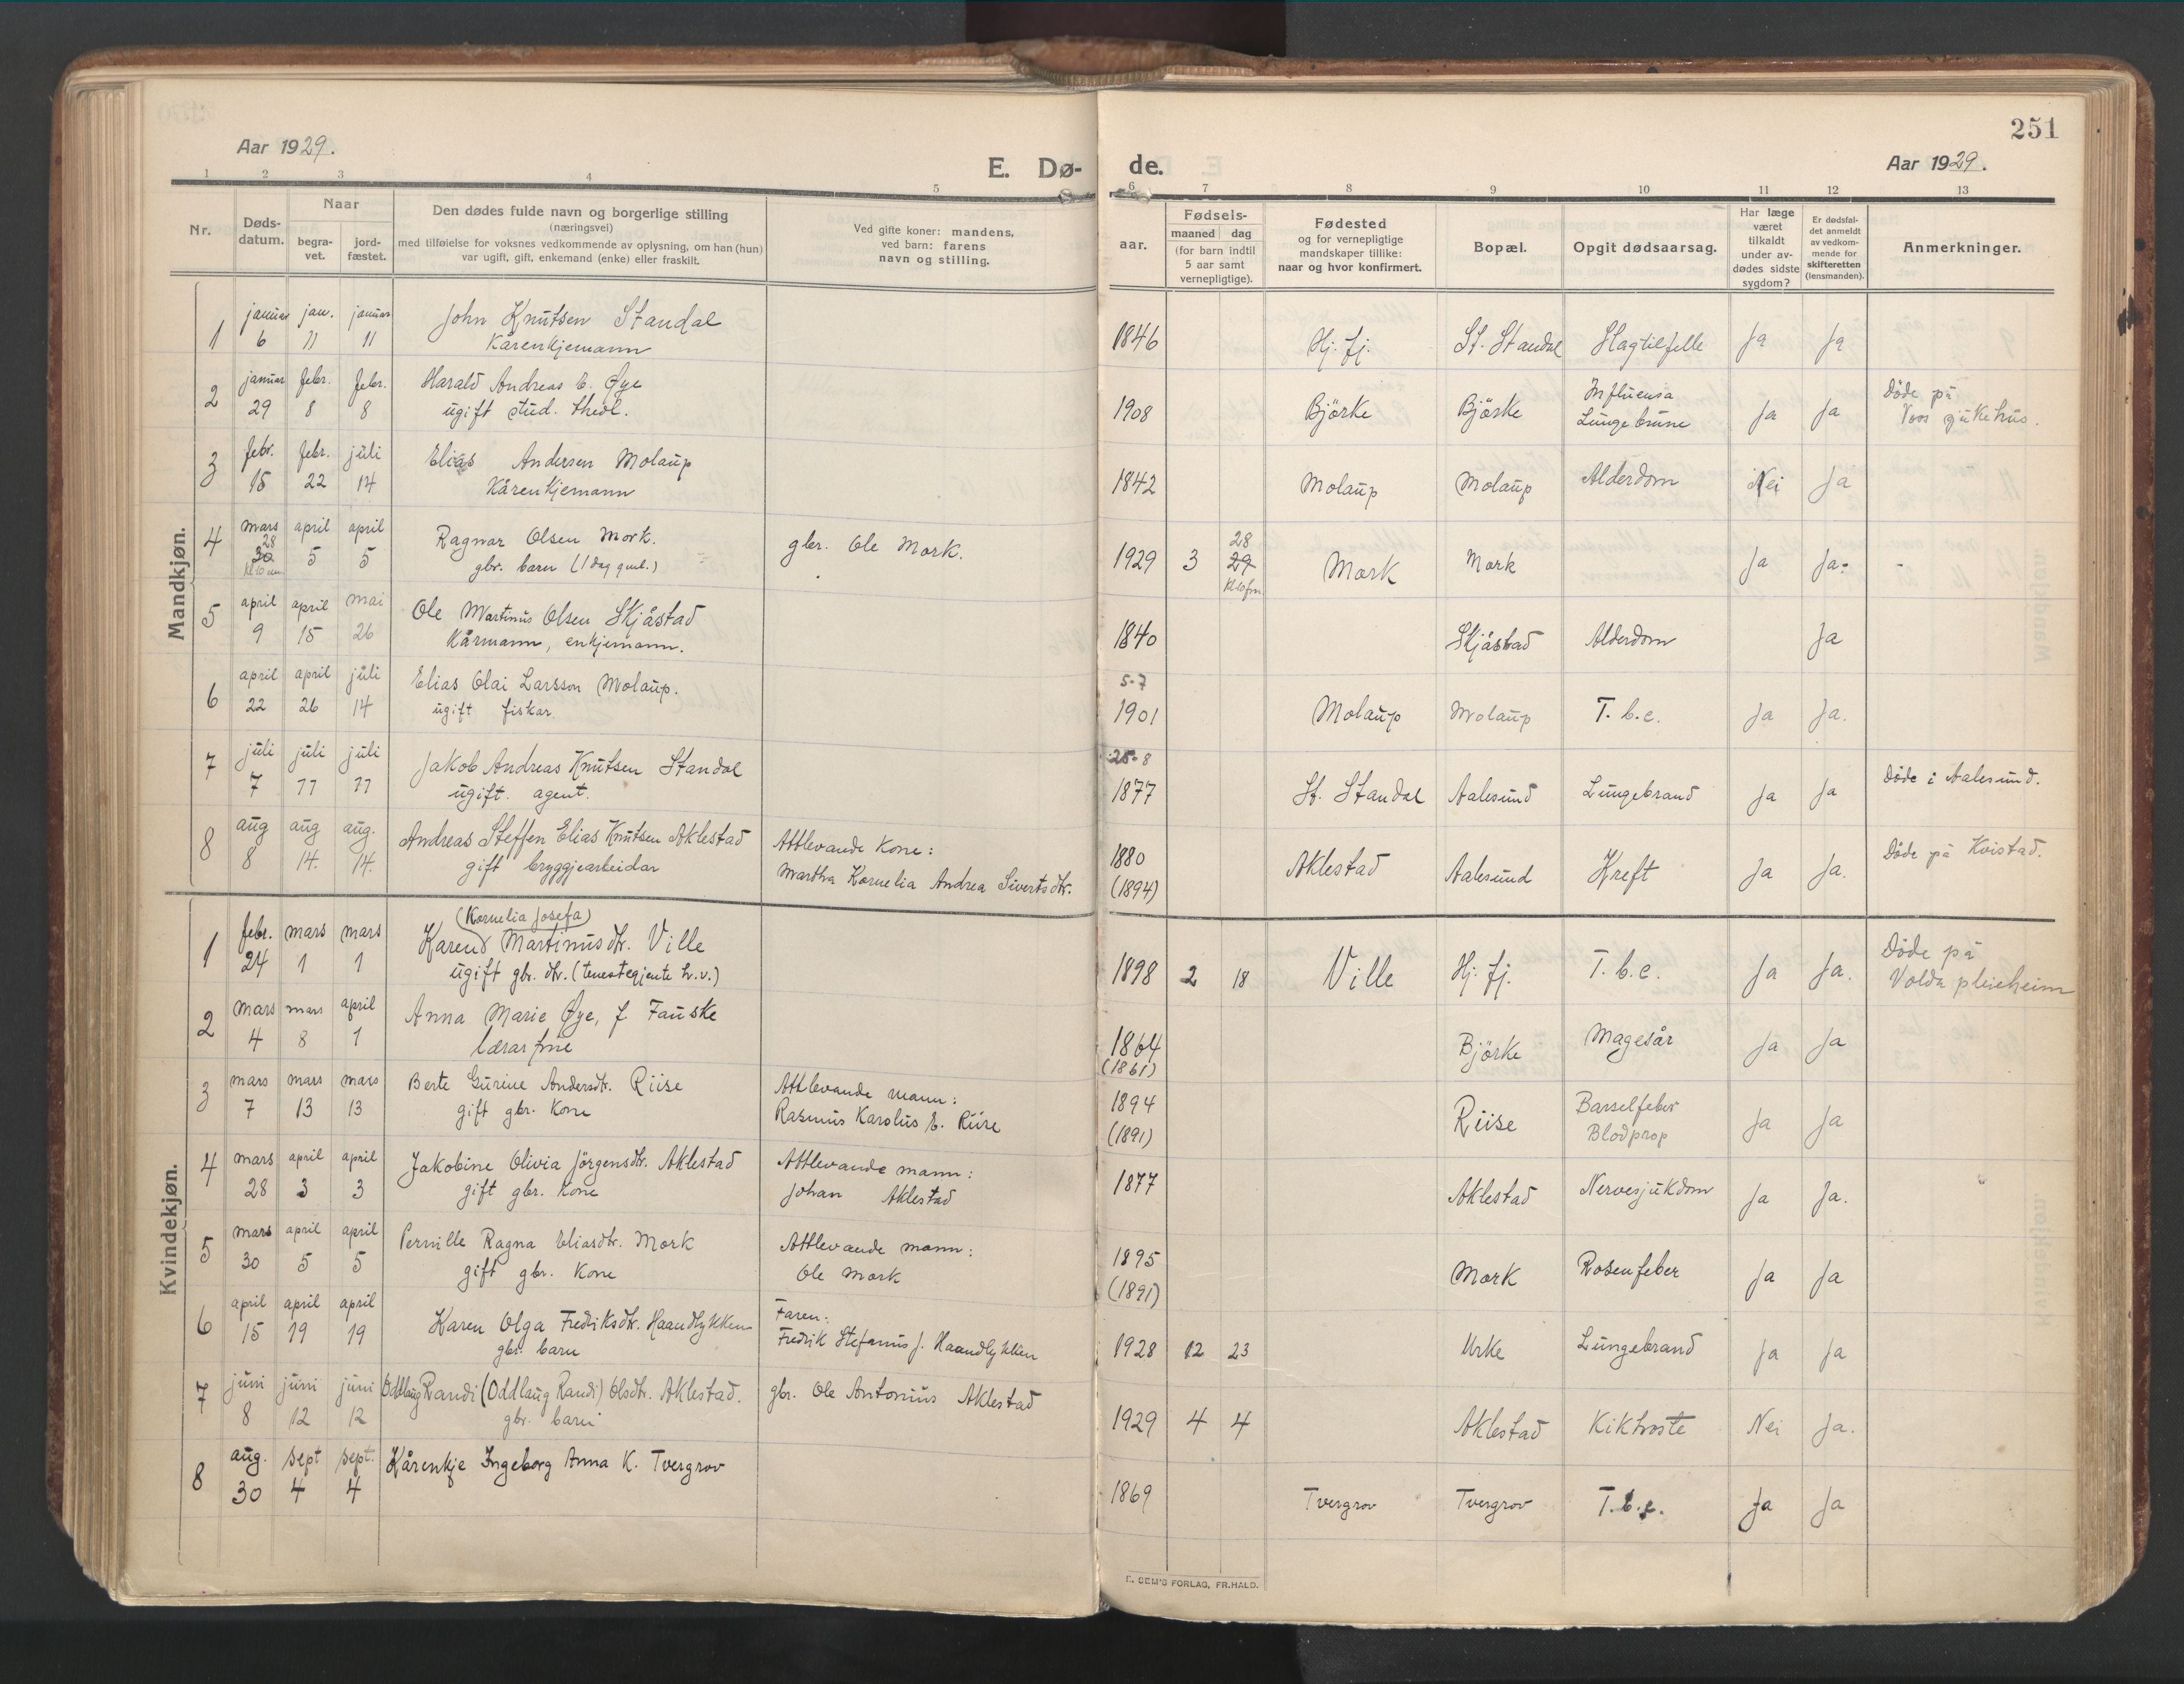 251
Aar 1929.
E. Dø- de.
Aar 1929.
1 2 3 4 5 6 7 8 9 10 11 12 13
Nr.
Døds-
datum.
Naar
begra-
vet.
jord-
fæstet.
Den dødes fulde navn og borgerlige stilling
(næringsvei)
med tilføielse for voksnes vedkommende av oplysning, om han (hun)
var ugift, gift, enkemand (enke) eller fraskilt.
Ved gifte koner: mandens,
ved barn: farens
navn og stilling.
aar.
Fødsels-
maaned dag
(for barn indtil
5 aar samt
vernepligtige).
Fødested
og for vernepligtige
mandskaper tillike:
naar og hvor konfirmert.
Bopæl.
Opgit dødsaarsag.
Har læge
været
tilkaldt
under av-
dødes sidste
sygdom?
Er dødsfal-
det anmeldt
av vedkom-
mende for
skifteretten
(lensmanden).
Anmerkninger.
Mandkjøn.
1 januar jan. januar John Knutsen Standal
6 11 11 Kårenkjemann
1846 Hj. fj. St. Standal Slagtilfelle Ja Ja
2 januar febr. febr. Harald Andreas E. Øye
29 8 8 ugift stud. theol.
1908 Björke Björke Influensa
Lungebrune Ja Ja Döde på
Voss sjukehus.
3 febr. febr. juli Elias Andersen Molaup
15 22 14 Kårenkjemann
1842 Molaup Molaup Alderdom Nei Ja
4 mars april april Ragnar Olsen Mork.
28
30 5 5 gbr. barn (1 dag gml.)
gbr. Ole Mork.
1929 3 28
29
Kl 10 fm
Mork Mork Ja Ja.
5 april april mai Ole Martinus Olsen Skjåstad
9 15 26 Kårmann, enkjemann.
1840 Skjåstad Alderdom Ja
6 april april juli Elias Olai Larsson Molaup.
22 26 14 ugift fiskar.
5-7
1901 Molaup Molaup T.b.c. Ja Ja.
7 juli juli juli Jakob Andreas Knutsen Standal
7 11 11 ugift. agent.
25-8
1877 St. Standal Aalesund Lungebrand Ja Ja Döde i Aalesund.
8 aug aug aug. Andreas Steffen Elias Knutsen Aklestad
8 14. 14. gift bryggjearbeidar
Attlevande Kone:
Martha Kornelia Andrea Sivertsdtr.
1880
(1894) Aklestad Aalesund Kreft Ja Ja. Döde på Kvistad.
Kvindekjøn.
(Kornelia Josefa)
1 febr. mars mars Karen Martinusdtr. Ville
24 1 1 ugift gbr. dtr. (tenestegjente h.v.)
1898 2 18 Ville Hj. fj. T.b.c. Ja Ja. Döde på
Volda pleieheim
2 mars mars april Anna Marie Øye, f. Fauske
4 8 1 lærarfrue
1864
(1861) Björke Magesår Ja Ja
3 mars mars mars Berte Gurine Andersdtr. Riise
7 13 13 gift gbr. Kone
Attlevande mann:
Rasmus Karolus E. Riise
1894
(1891) Riise Barselfeber
Blodprop Ja Ja
4 mars april april Jakobine Olivia Jörgensdtr. Aklestad
28 3 3 gift gbr. Kone
Attlevande mann:
Johan Aklestad
1877 Aklestad Nervesjukdom Ja Ja.
5 mars april april Pernille Ragna Eliasdtr. Mork
30 5 5 gift gbr. Kone
Attlevande mann:
Ole Mork
1895
(1891) Mork Rosenfeber Ja Ja
6 april april april Karen Olga Fredriksdtr. Haandlykken
15 19 19 gbr. barn
Faren:
Fredrik Stefanus J. Haandlykken
1928 12 23 Urke Lungebrand Ja Ja
7 juni juni juni Oddlaug Randi (Oddlaug Randi) Olsdtr. Aklestad.
8 12 12 gbr. barn
gbr. Ole Antonius Aklestad
1929 4 4 Aklestad Kikhoste Nei Ja.
8 aug. sept sept. Kårenkje Ingeborg Anna K. Tvergrov
30 4 4
1869 Tvergrov Tvergrov T.b.c. Ja Ja
E. SEM'S FORLAG, FR.HALD.